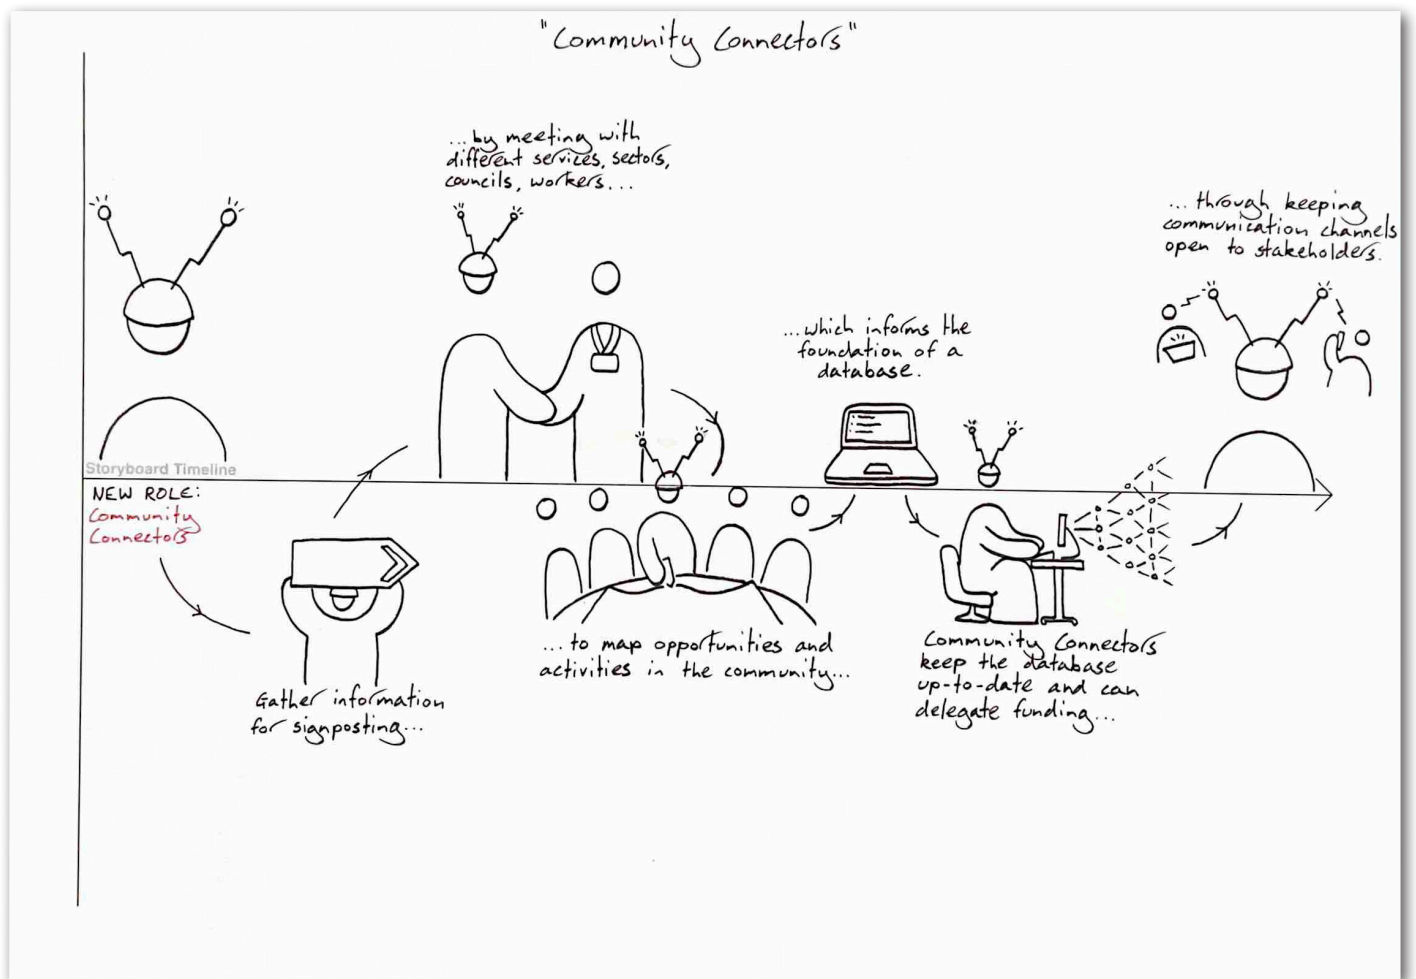 "Community Connectors"
Storyboard Timeline
NEW ROLE:
Community
Connectors
Gather information
for signposting...
...by meeting with
different services, sectors,
councils, workers...
...to map opportunities and
activities in the community...
...which informs the
foundation of a
database.
Community Connectors
keep the database
up-to-date and can
delegate funding...
...through keeping
communication channels
open to stakeholders.